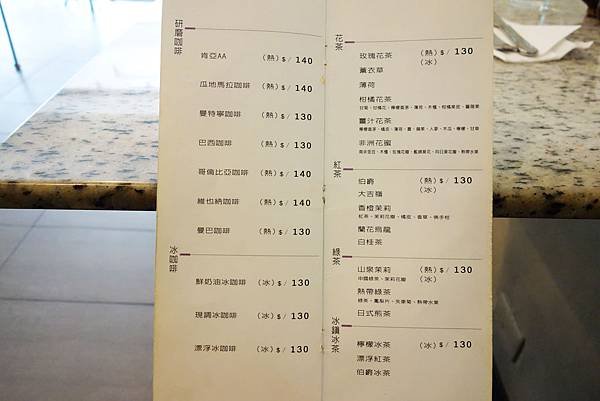 研磨咖啡
肯亞AA (熱) $ / 140
瓜地馬拉咖啡 (熱) $ / 140
曼特寧咖啡 (熱) $ / 130
巴西咖啡 (熱) $ / 130
哥倫比亞咖啡 (熱) $ / 140
維也納咖啡 (熱) $ / 140
曼巴咖啡 (熱) $ / 130
冰咖啡
鮮奶油冰咖啡 (冰) $ / 130
現調冰咖啡 (冰) $ / 130
漂浮冰咖啡 (冰) $ / 130
花茶
玫瑰花茶 (熱) $ / 130
(冰)
薰衣草
薄荷
柑橘花茶
薑汁花茶
非洲花蜜
紅茶
伯爵 (熱) $ / 130
大吉嶺 (冰)
香橙茉莉
紅茶、茉莉花瓣、橘皮、香草、佛手柑
蘭花烏龍
白桂茶
綠茶
山泉茉莉 (熱) $ / 130
中國綠茶、茉莉花瓣 (冰)
熱帶綠茶
綠茶、鳳梨片、矢車菊、熱帶水果
日式煎茶
冰鎮冰茶
檸檬冰茶 (冰) $ / 130
漂浮紅茶
伯爵冰茶